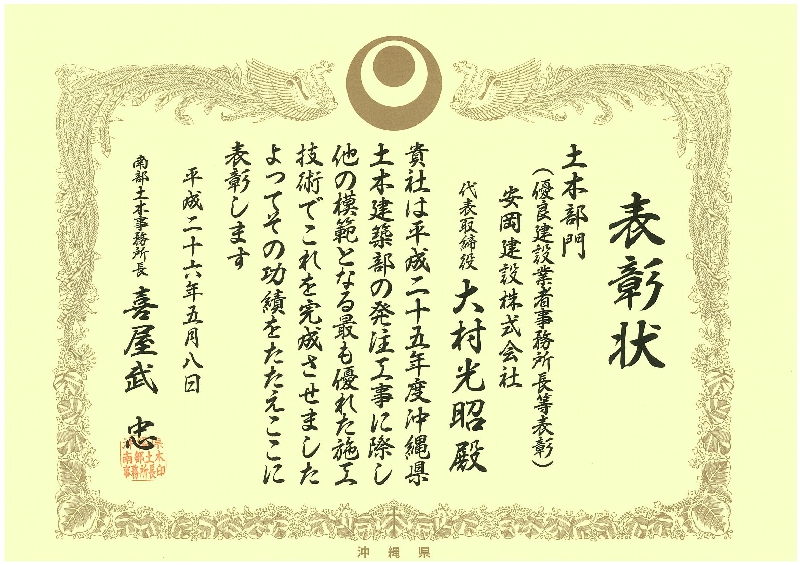 表彰状
土木部門
(優良建設業者事務所長等表彰)
安岡建設株式会社
代表取締役 大村光昭殿
貴社は平成二十五年度沖縄県
土木建築部の発注工事に際し
他の模範となる最も優れた施工
技術でこれを完成させました
よってその功績をたたえここに
表彰します
平成二十六年五月八日
南部土木事務所長 喜屋武 忠
南部土木
事務所長印
沖縄県